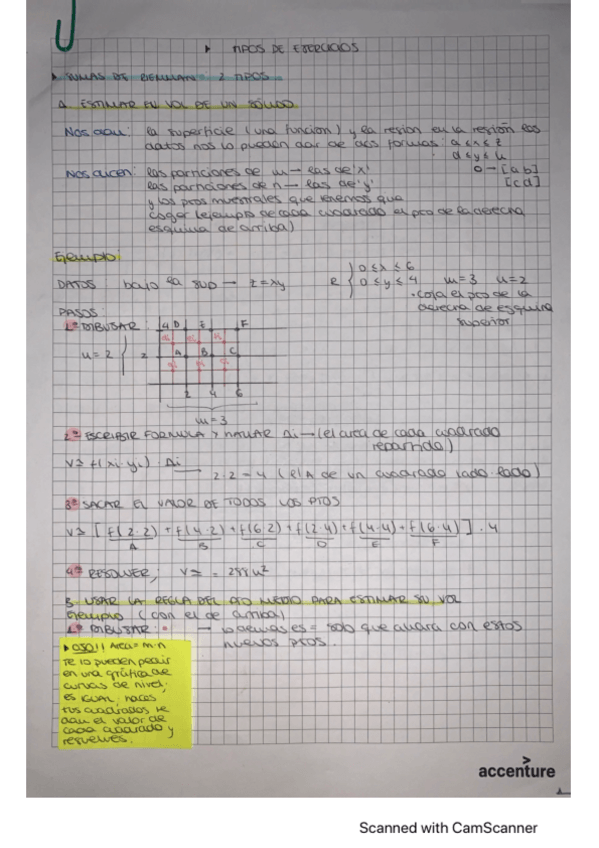 ▸ TIPOS DE EJERCICIOS
▸ SUMAS DE RIEMMAN: 2 TIPOS
A. ESTIMAR EN VOL DE UN SÓLIDO
Nos dan: la superficie (una función) y la región en la región los
datos nos lo pueden dar de dos formas: a≤x≤z
d≤y≤u
Nos dicen: las particiones de m → las de 'x'
0 → [a b]
las particiones de n → las de 'y'
[c d]
y los ptos muestrales que tenemos que
coger (ejemplo de cada cuadrado el pto de la derecha
esquina de arriba)
Ejemplo:
DATOS: bajo la sup → z=xy R { 0≤x≤6
0≤y≤4 m=3 n=2
• coja el pto de la
derecha de esquina
superior
PASOS:
1º DIBUJAR:
4 D E F
n=2 { 2 A B C
2 4 6
m=3
2º ESCRIBIR FORMULA Y HALLAR Δi → (el area de cada cuadrado
repartido)
V≈ f(xi·yi)·Δi
2·2=4 (el A de un cuadrado lado·lado)
3º SACAR EL VALOR DE TODOS LOS PTOS
V≈ [f(2·2)+f(4·2)+f(6·2)+f(2·4)+f(4·4)+f(6·4)]·4
A B C D E F
4º RESOLVER; V≈ = 288u²
B. USAR LA REGLA DEL PTO MEDIO PARA ESTIMAR SU VOL
Ejemplo (con el de arriba)
1º DIBUJAR: • → lo demas es = solo que ahora con estos
nuevos ptos.
▸ OJO!! Area = m·n
Te lo pueden pedir
en una gráfica de
curvas de nivel,
es IGUAL: haces
tus cuadrados te
dan el valor de
cada cuadrado y
resuelves.
accenture
Scanned with CamScanner